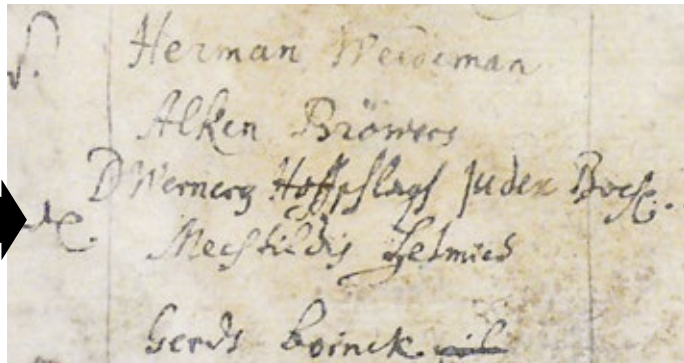 Herman Weideman
Alken Bröwers
D Wernerg Hoffschlags Judex Boch.
Mechtildis Helmies
Gerdt Boinck